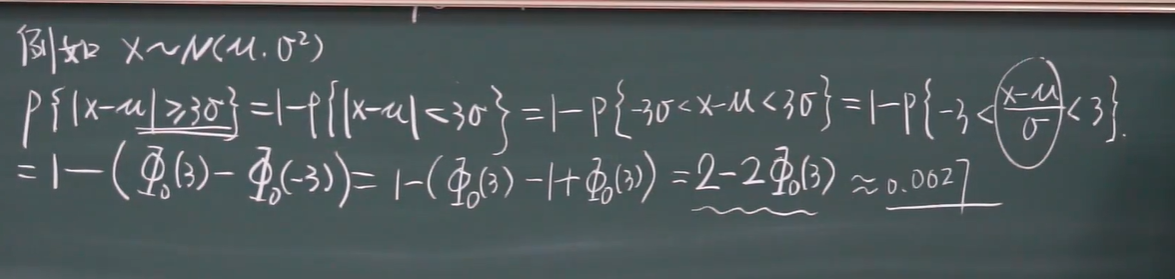 例如 X~N(μ.σ²)
P{|X-μ|≥3σ}=1-P{|X-μ|<3σ}=1-P{-3σ<X-μ<3σ}=1-P{-3<\frac{X-μ}{σ}<3}.
=1-(Φ₀(3)-Φ₀(-3))=1-(Φ₀(3)-1+Φ₀(3))=2-2Φ₀(3)≈0.0027